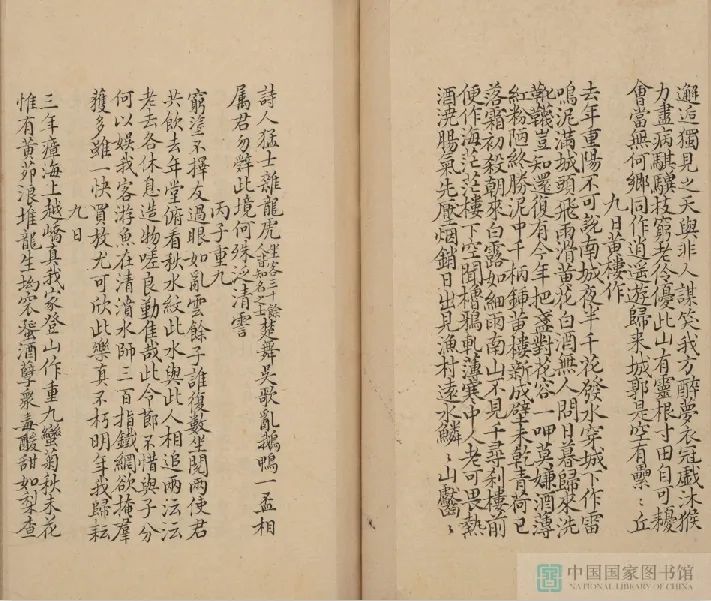 邂逅獨見之天與非人謀笑我方醉夢衣冠戲沐猴
力盡病騏驥技窮老伶優此山有靈根寸田自可耰
會當無何鄉同作逍遙遊歸来城郭是空有纍〻丘
九日黄樓作
去年重陽不可說南城夜半千花發水穿城下作雷
鳴泥滿城頭飛雨滑黄花白酒無人問日暮歸來洗
靴韈豈知還復有今年把盞對花容一呷莫嫌酒薄
紅粉陋終勝泥中千柄鍤黄樓新成壁未乾青荷已
落霜初殺朝來白露如細雨南山不見千尋刹樓前
便作海茫茫樓下空聞櫓鴉軋薄寒中人老可畏熱
酒澆腸氣先壓烟銷日出見漁村遠水鱗〻山齾〻
詩人猛士雜龍虎坐客三十餘人皆知名之士楚舞吳歌亂鵝鴨一盃相
屬君勿辭此境何殊泛清霅
丙子重九
窮塗不擇友過眼如亂雲餘子誰復數坐閱兩使君
共飲去年堂俯看秋水紋此水與此人相追兩沄沄
老去各休息造物嗟長勤佳哉此令節不惜與子分
何以娛我客游魚在清濆水師三百指鐵網欲掩羣
獲多雖一快買放尤可欣此樂真不朽明年我歸耘
九日
三年瘴海上越嶠真我家登山作重九蠻菊秋未花
惟有黄茆浪堆龍生坳窊蜑酒孽衆毒酸甜如梨查
中国国家图书馆
NATIONAL LIBRARY OF CHINA